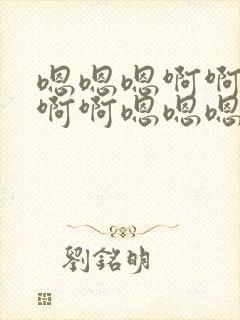 嗯嗯嗯啊啊
啊啊嗯嗯嗯
劉銘明